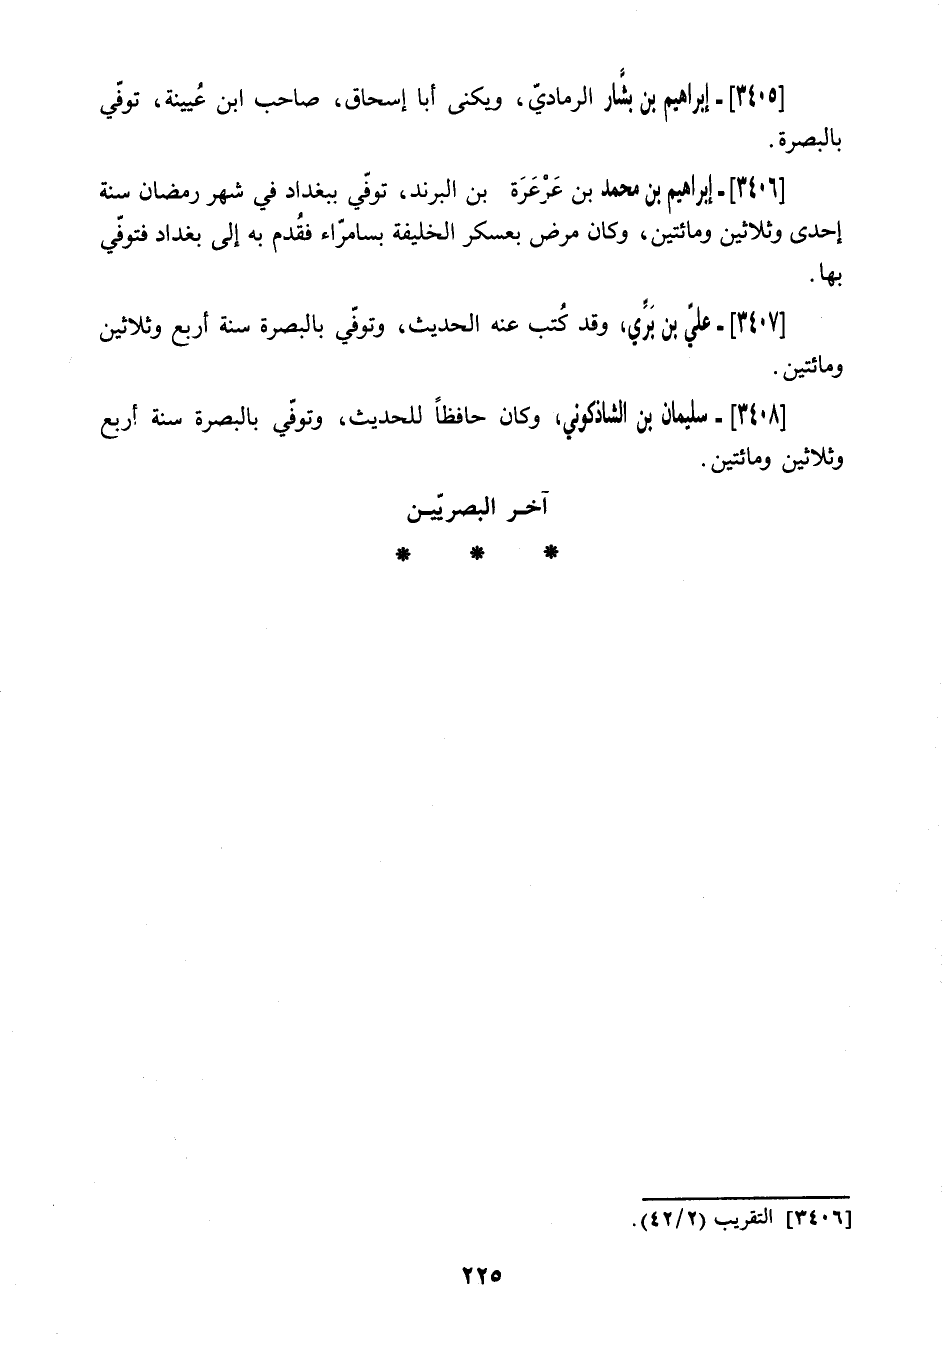 [٣٤٠٥] ـ إبراهيم بن بشَّار الرماديّ، ويكنى أبا إسحاق، صاحب ابن عُيينة، توفّي
بالبصرة.
[٣٤٠٦] ـ إبراهيم بن محمد بن عَرْعَرَة بن البرند، توفّي ببغداد في شهر رمضان سنة
إحدى وثلاثين ومائتين، وكان مرض بعسكر الخليفة بسامرّاء فقُدم به إلى بغداد فتوفّي
بها.
[٣٤٠٧] ـ عليّ بن بَرِّي، وقد كُتب عنه الحديث، وتوفّي بالبصرة سنة أربع وثلاثين
ومائتين.
[٣٤٠٨] ـ سليمان بن الشاذكوني، وكان حافظاً للحديث، وتوفّي بالبصرة سنة أربع
وثلاثين ومائتين.
آخـر البصريّيـن
* * *
[٣٤٠٦] التقريب (٤٢/٢).
٢٢٥